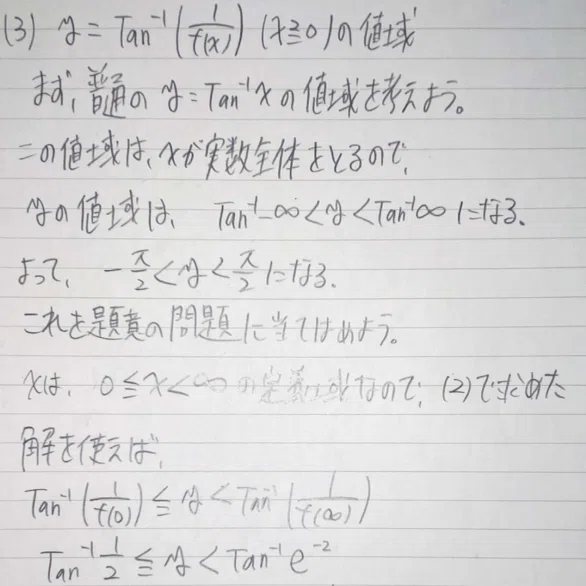 (3) y = Tan⁻¹(1/f(x)) (x≧0)の値域
まず、普通の y=Tan⁻¹xの値域を考えよう。
この値域は、xが実数全体をとるので、
yの値域は、 Tan⁻¹-∞<y<Tan⁻¹∞になる。
よって、 -π/2<y<π/2になる。
これを題意の問題に当てはめよう。
xは、 0≦x<∞の定義域なので、(2)で求めた
解を使えば、
Tan⁻¹(1/f(0))≦y<Tan⁻¹(1/f(∞))
Tan⁻¹1/2≦y<Tan⁻¹e⁻²